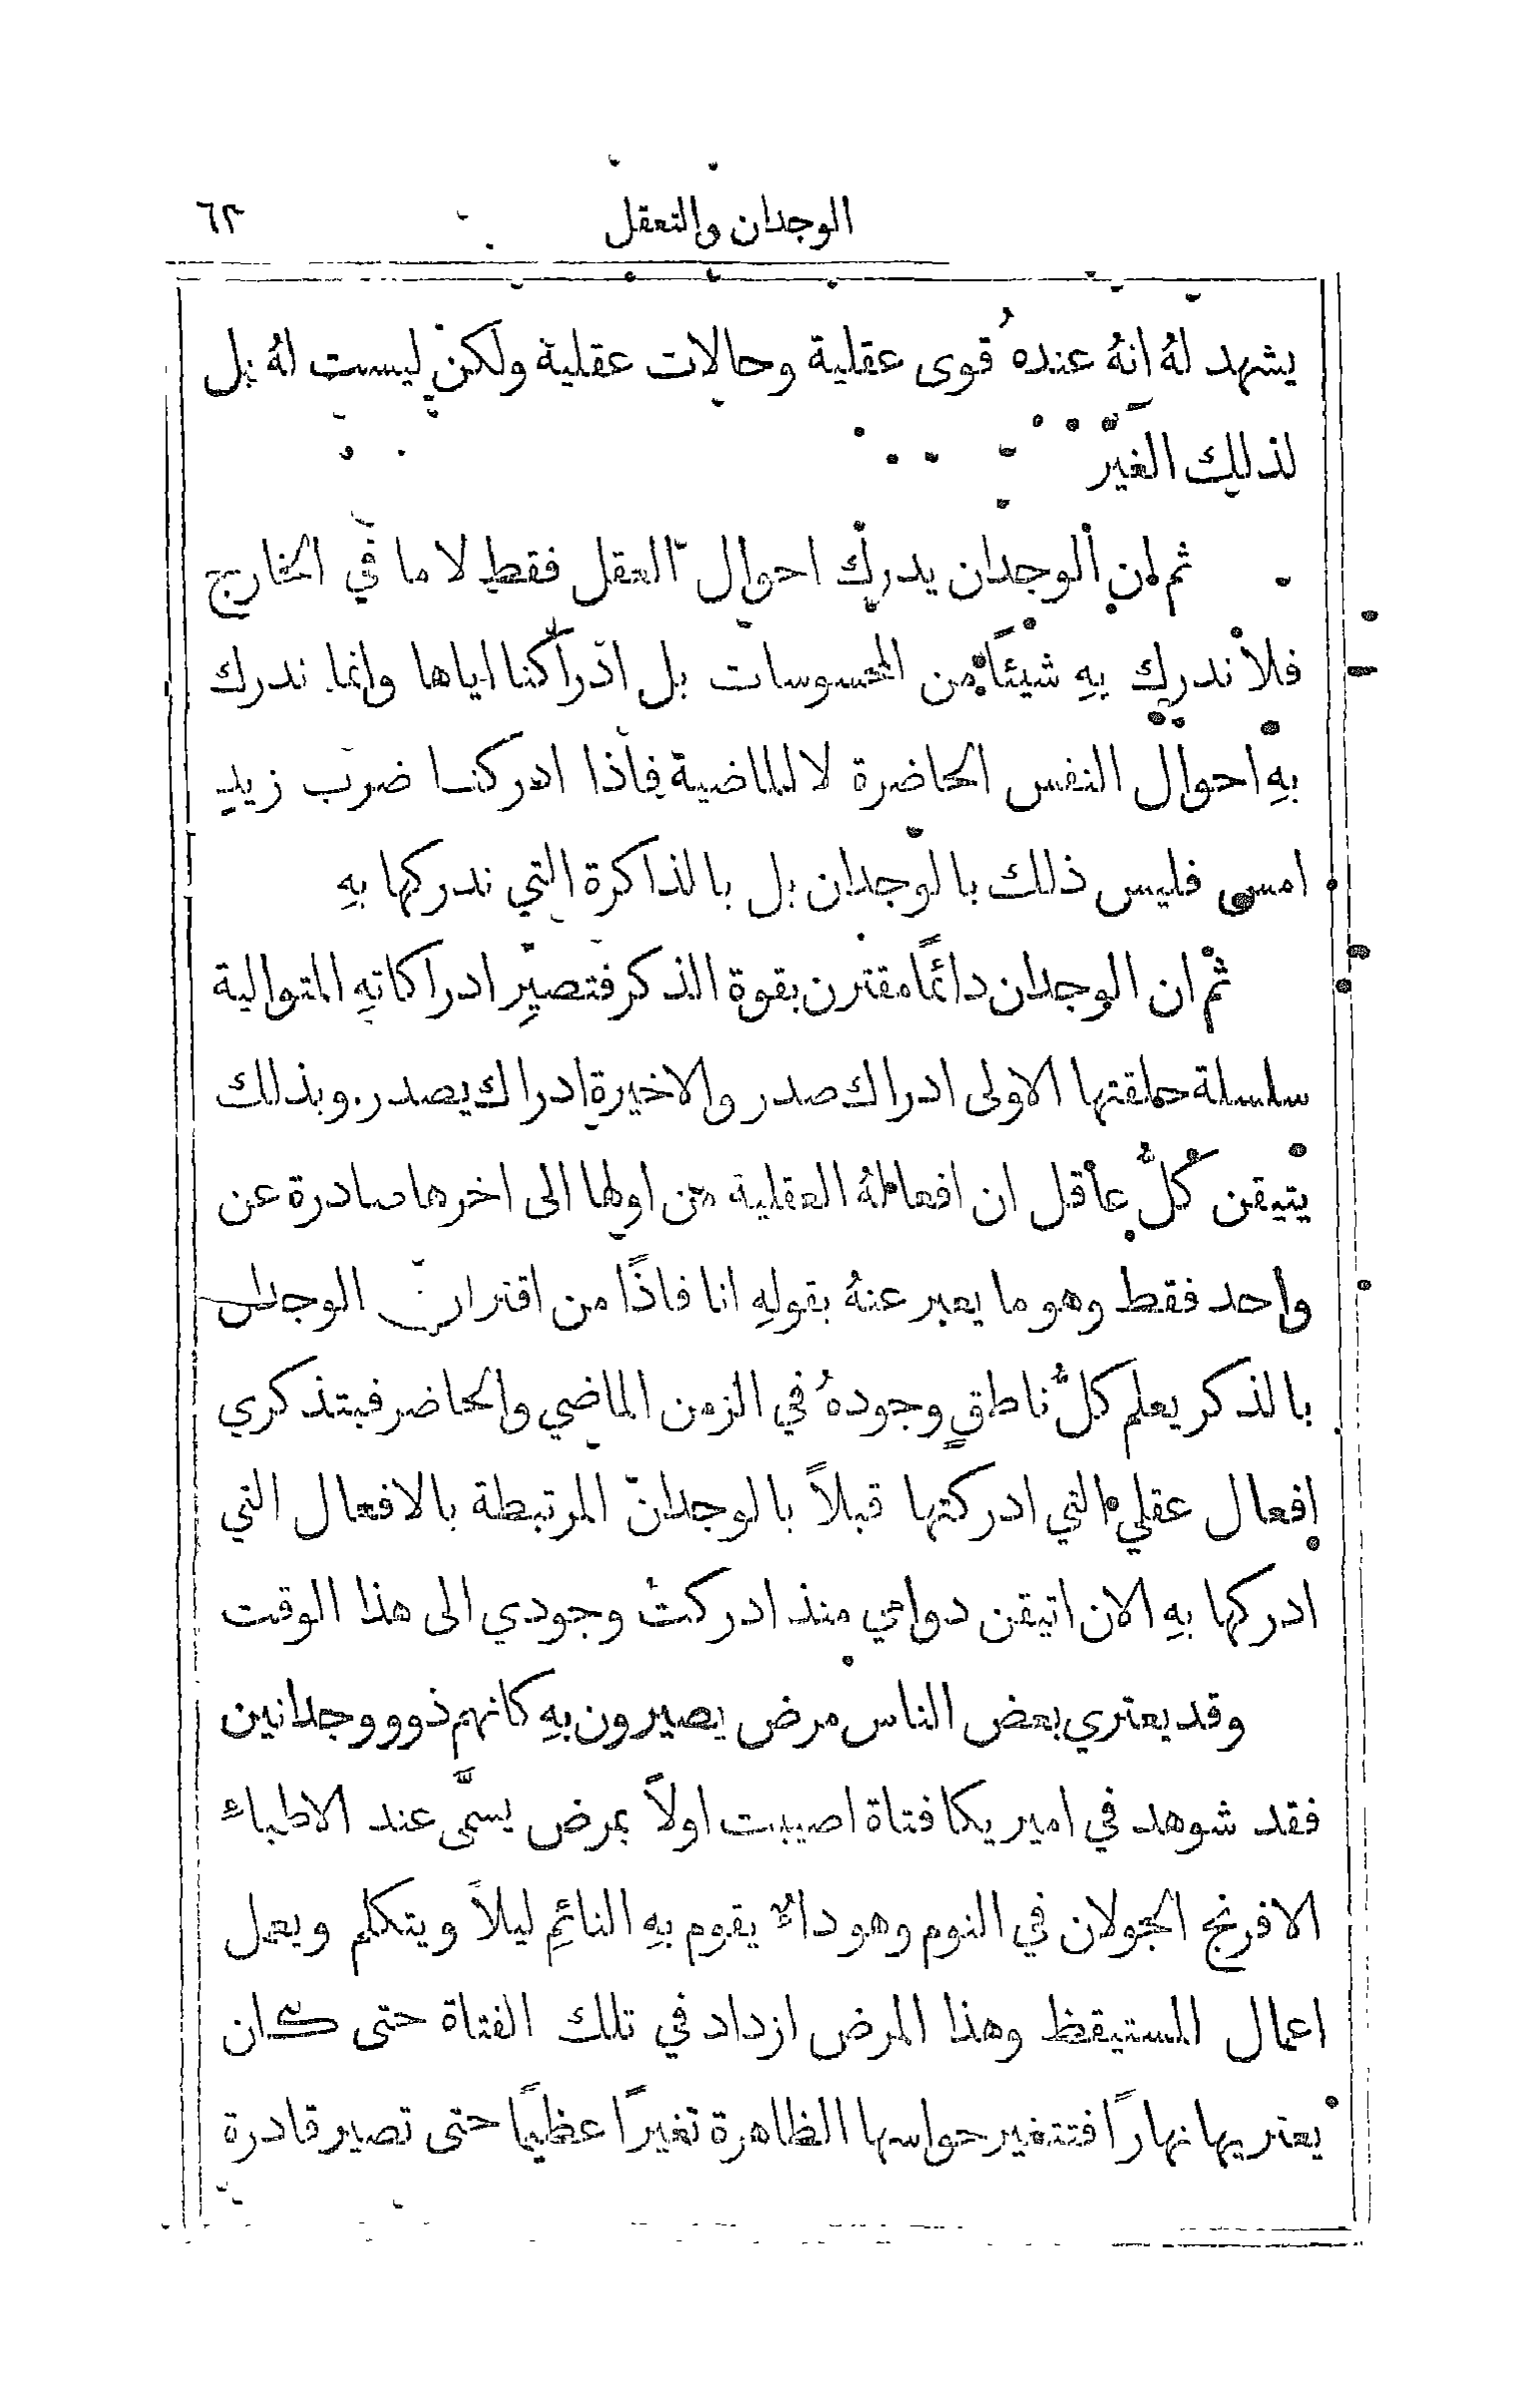 الوجدان والتعقل ٦٣
يشهد لهُ انهُ عندهُ قوى عقلية وحالات عقلية ولكن ليست لهُ بل
لذلك الغير
ثم ان الوجدان يدرك احوال العقل فقط لا ما في الخارج
فلا ندرك بهِ شيئًا من المحسوسات بل ادراكنا اياها وانما ندرك
بهِ احوال النفس الحاضرة لا الماضية فاذا ادركنا ضرب زيدٍ
امسى فليس ذلك بالوجدان بل بالذاكرة التي ندركها بهِ
ثم ان الوجدان دائمًا مقترن بقوة الذكر فتصير ادراكاتهِ المتوالية
سلسلة حلقتها الاولى ادراك صدر والاخيرة ادراك يصدر. وبذلك
يتيقن كلُّ عاقل ان افعالهُ العقلية من اولها الى اخرها صادرة عن
واحد فقط وهو ما يعبر عنهُ بقولهِ انا فاذًا من اقتران الوجدان
بالذكر يعلم كلُّ ناطقٍ وجودهُ في الزمن الماضي والحاضر فبتذكري
افعال عقلي التي ادركتها قبلاً بالوجدان المرتبطة بالافعال التي
ادركها بهِ الان اتيقن دوامي منذ ادركت وجودي الى هذا الوقت
وقد يعتري بعض الناس مرض يصيرون بهِ كانهم ذوو وجدانين
فقد شوهد في اميريكا فتاة اصيبت اولاً بمرض يسمَّى عند الاطباء
الافرنج الجولان في النوم وهو داءٌ يقوم بهِ النائمِ ليلاً ويتكلم ويعمل
اعمال المستيقظ وهذا المرض ازداد في تلك الفتاة حتى كان
يعتريها نهارًا فتتغير حواسها الظاهرة تغيرًا عظيمًا حتى تصير قادرة